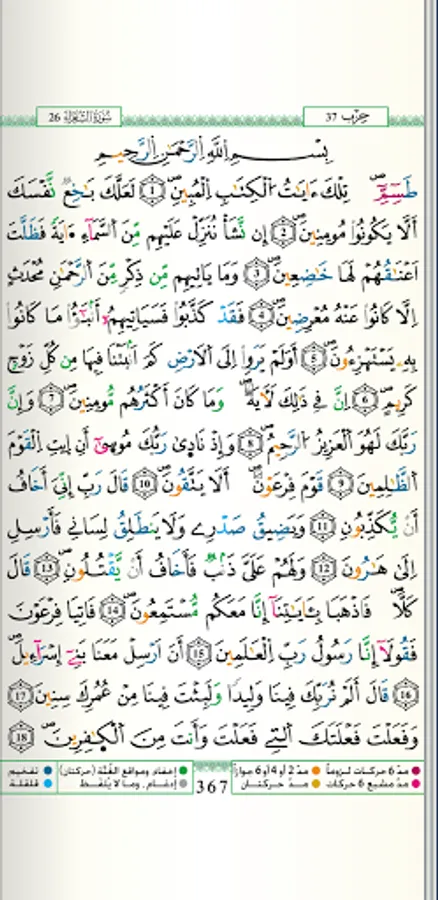 سُورَةُ الشُّعَرَاءِ 26
حِزْب 37
بِسْمِ اِللَّهِ اِلرَّحْمَٰنِ اِلرَّحِيمِ
طَسِٓمِّٓۖ تِلْكَ ءَايَٰتُ اُلْكِتَٰبِ اِلْمُبِينِۖ ١ لَعَلَّكَ بَٰخِعٞ نَّفْسَكَ
أَلَّا يَكُونُواْ مُومِنِينَۖ ٢ إِن نَّشَأْ نُنَزِّلْ عَلَيْهِم مِّنَ اَلسَّمَآءِ ءَايَةٗ فَظَلَّتَ
اَعْنَٰقُهُمْ لَهَا خَٰضِعِينَۖ ٣ وَمَا يَاتِيهِم مِّن ذِكْرٖ مِّنَ اَلرَّحْمَٰنِ مُحْدَثٍ
اِلَّا كَانُواْ عَنْهُ مُعْرِضِينَۖ ٤ فَقَدْ كَذَّبُواْ فَسَيَاتِيهِمُۥٓ أَنۢبَٰٓؤُاْ مَا كَانُواْ
بِهِۦ يَسْتَهْزِءُونَۖ ٥ أَوَلَمْ يَرَوِاْ اِلَى اَلَارْضِ كَمَ اَنۢبَتْنَا فِيهَا مِن كُلِّ زَوْجٖ
كَرِيمٍۖ ٦ اِنَّ فِے ذَٰلِكَ لَأٓيَةٗۖ وَمَا كَانَ أَكْثَرُهُم مُّومِنِينَۖ ٧ وَإِنَّ
رَبَّكَ لَهُوَ اَلْعَزِيزُ اُلرَّحِيمُۖ ٨ وَإِذْ نَادَىٰ رَبُّكَ مُوسَىٰٓ أَنِ اِيتِ اِلْقَوْمَ
اَلظَّٰلِمِينَ ٩ قَوْمَ فِرْعَوْنَۖ أَلَا يَتَّقُونَۖ ١٠ قَالَ رَبِّ إِنِّيَ أَخَافُ
أَنْ يُّكَذِّبُونِ ١١ وَيَضِيقُ صَدْرِے وَلَا يَنطَلِقُ لِسَانِے فَأَرْسِلِ
اِلَىٰ هَٰرُونَۖ ١٢ وَلَهُمْ عَلَيَّ ذَنۢبٞ فَأَخَافُ أَنْ يَّقْتُلُونِۖ ١٣ قَالَ
كَلَّاۖ فَاذْهَبَا بِـَٔايَٰتِنَآ إِنَّا مَعَكُم مُّسْتَمِعُونَۖ ١٤ فَاتِيَا فِرْعَوْنَ
فَقُولَآ إِنَّا رَسُولُ رَبِّ اِلْعَٰلَمِينَ ١٥ أَنَ اَرْسِلْ مَعَنَا بَنِےٓ إِسْرَآءِيلَۖ
١٦ قَالَ أَلَمْ نُرَبِّكَ فِينَا وَلِيداٗ وَلَبِثْتَ فِينَا مِنْ عُمُرِكَ سِنِينَ ١٧
وَفَعَلْتَ فَعْلَتَكَ اَلتِے فَعَلْتَ وَأَنتَ مِنَ اَلْكَٰفِرِينَۖ ١٨
مدّ 6 حركات لزوماً مدّ 2 أو 4 أو 6 جوازاً
مدّ مشبع 6 حركات مدّ حركتان
367
إخفاء، ومواقع الغُنَّة (حركتان) تفخيم
إدغام، وما لا يُلفَظ قلقلة